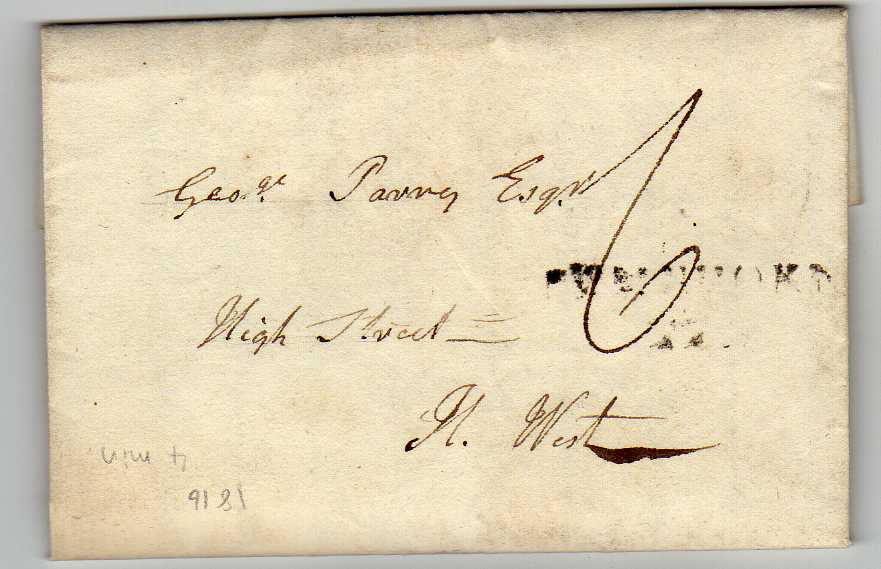 Geo.ge Parry Esqr
6
High Street
H. West
1816